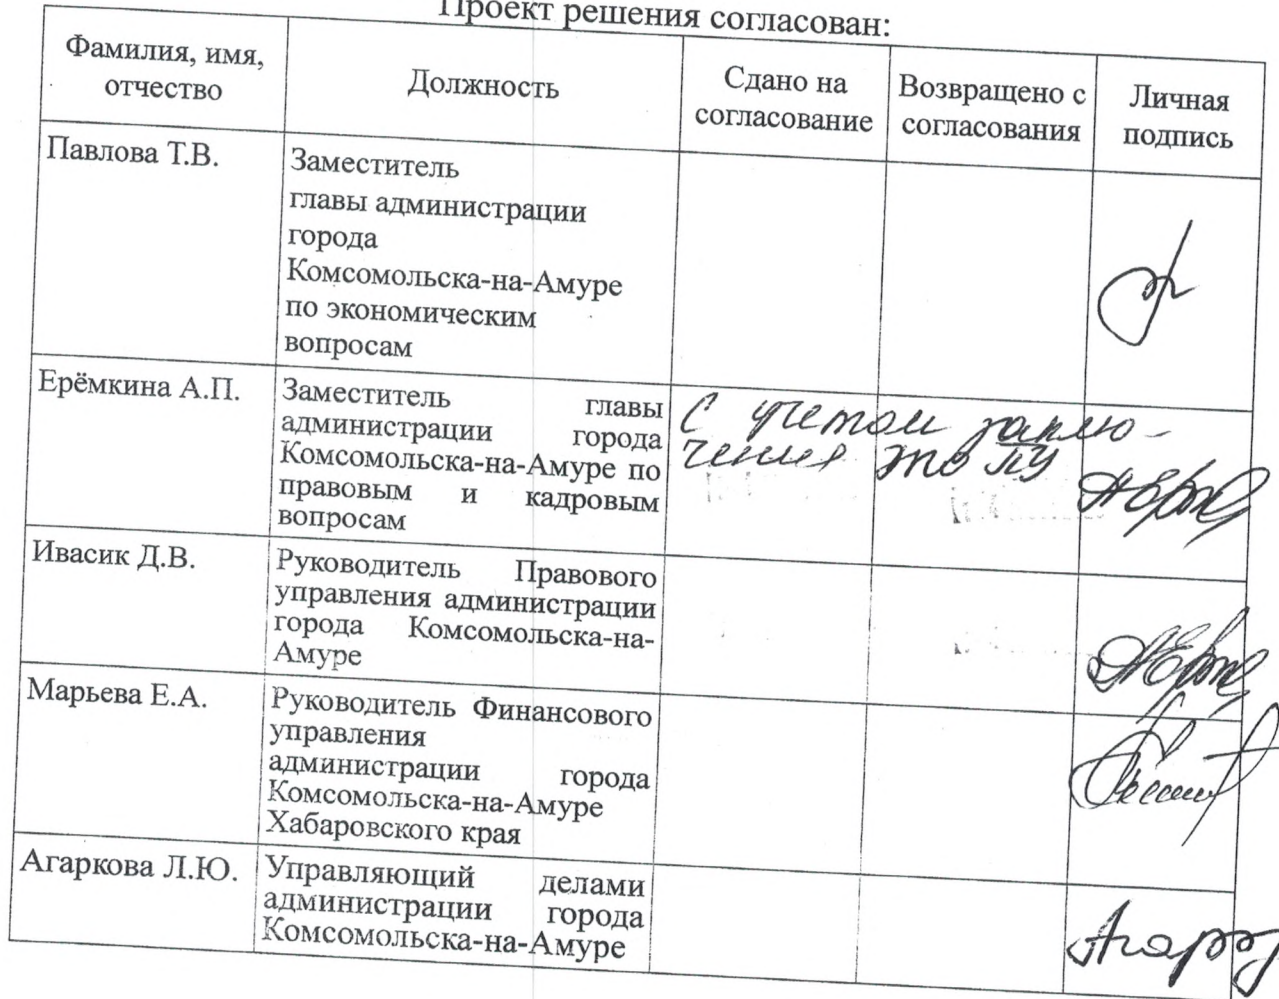 Проект решения согласован:
Фамилия, имя,
отчество
Должность
Сдано на
согласование
Возвращено с
согласования
Личная
подпись
Павлова Т.В.
Заместитель
главы администрации
города
Комсомольска-на-Амуре
по экономическим
вопросам
Ерёмкина А.П.
Заместитель главы
администрации города
Комсомольска-на-Амуре по
правовым и кадровым
вопросам
С учетом заклю-
чения ПУ
Ивасик Д.В.
Руководитель Правового
управления администрации
города Комсомольска-на-
Амуре
Марьева Е.А.
Руководитель Финансового
управления
администрации города
Комсомольска-на-Амуре
Хабаровского края
Агаркова Л.Ю.
Управляющий делами
администрации города
Комсомольска-на-Амуре